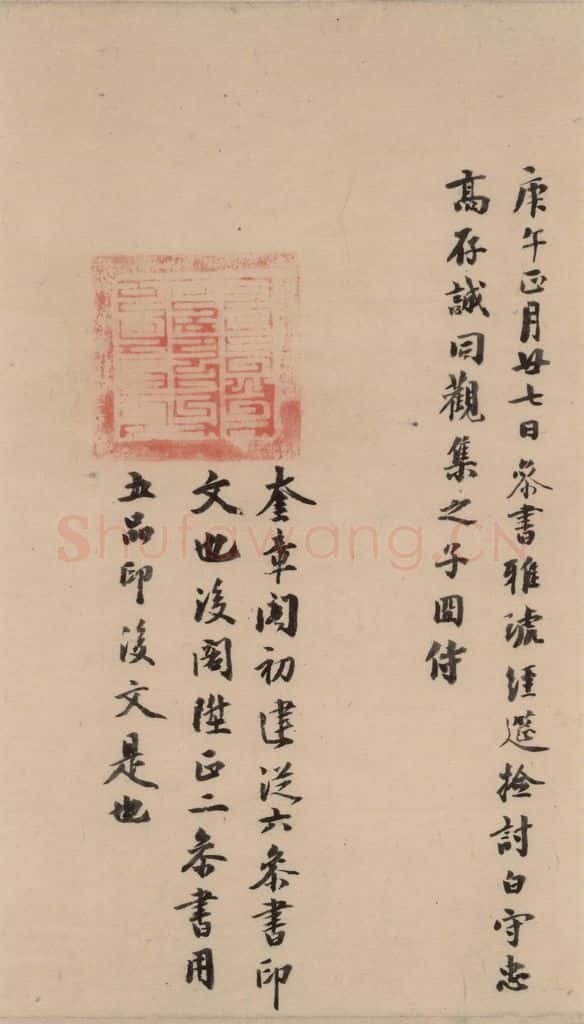 庚午正月廿七日叅書雅琥經筵撿討白守忠
髙存誠同觀集之子囬侍
奎章閣初建從六叅書印
文也後閣陞正二叅書用
五品印後文是也
Shufawang.CN